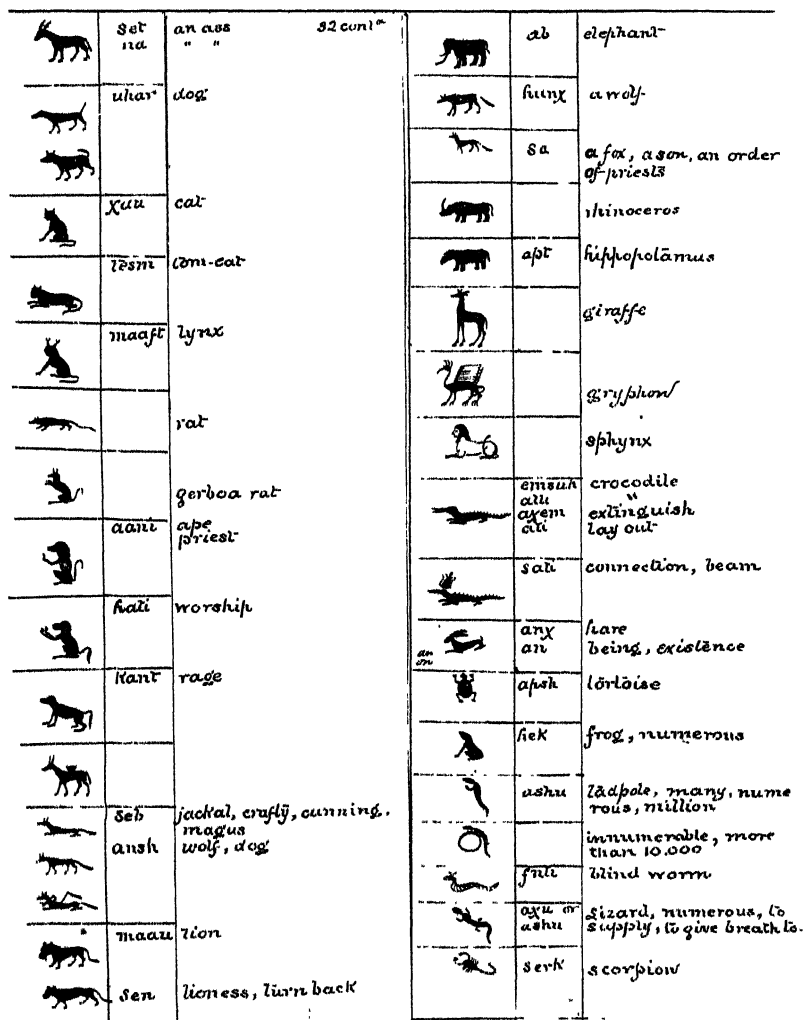 set an ass
na " "
uhar dog
χuu cat
tesm tom-cat
maaft lynx
rat
gerboa rat
aani ape
priest
hati worship
kant rage
jackal, crafty, cunning,
magus
ansh wolf, dog
maau lion
sen lioness, turn back
ab elephant
hunχ a wolf
sa a fox, a son, an order
of priests
rhinoceros
apt hippopotamus
giraffe
gryphon
sphynx
emsuh crocodile
"
aχem extinguish
ati lay out
sati connection, beam
anχ hare
an being, existence
an
on
apsh tortoise
hek frog, numerous
ashu tadpole, many, nume
rous, million
innumerable, more
than 10.000
blind worm
aχu or Lizard, numerous, to
ashu supply, to give breath to.
serk scorpion